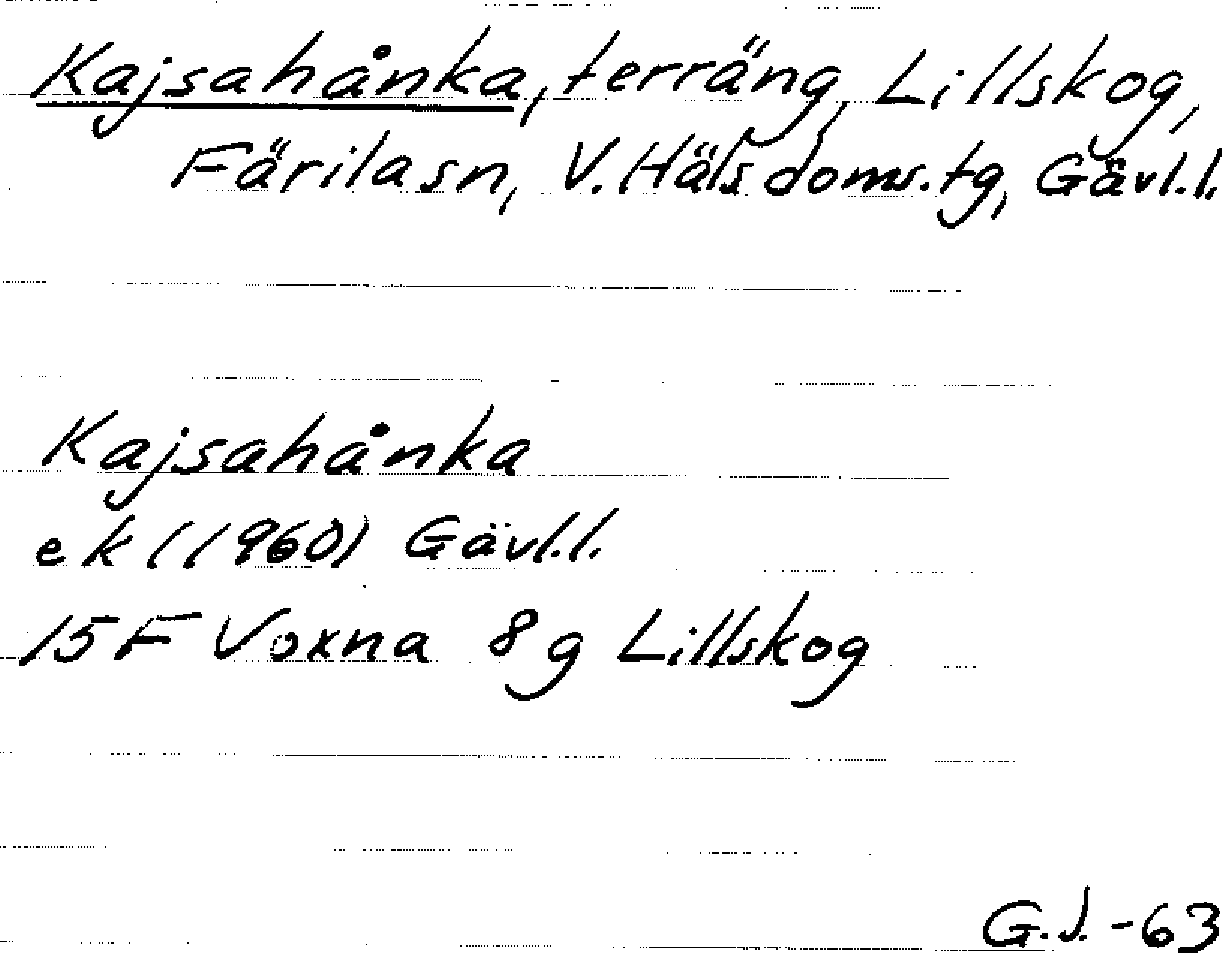 Kajsahånka, terräng, Lillskog,
Färilasn, V. Häls. doms.tg, Gävl.l.
Kajsahånka
ek (1960) Gävl.l.
15F Voxna 8g Lillskog
G.J.-63